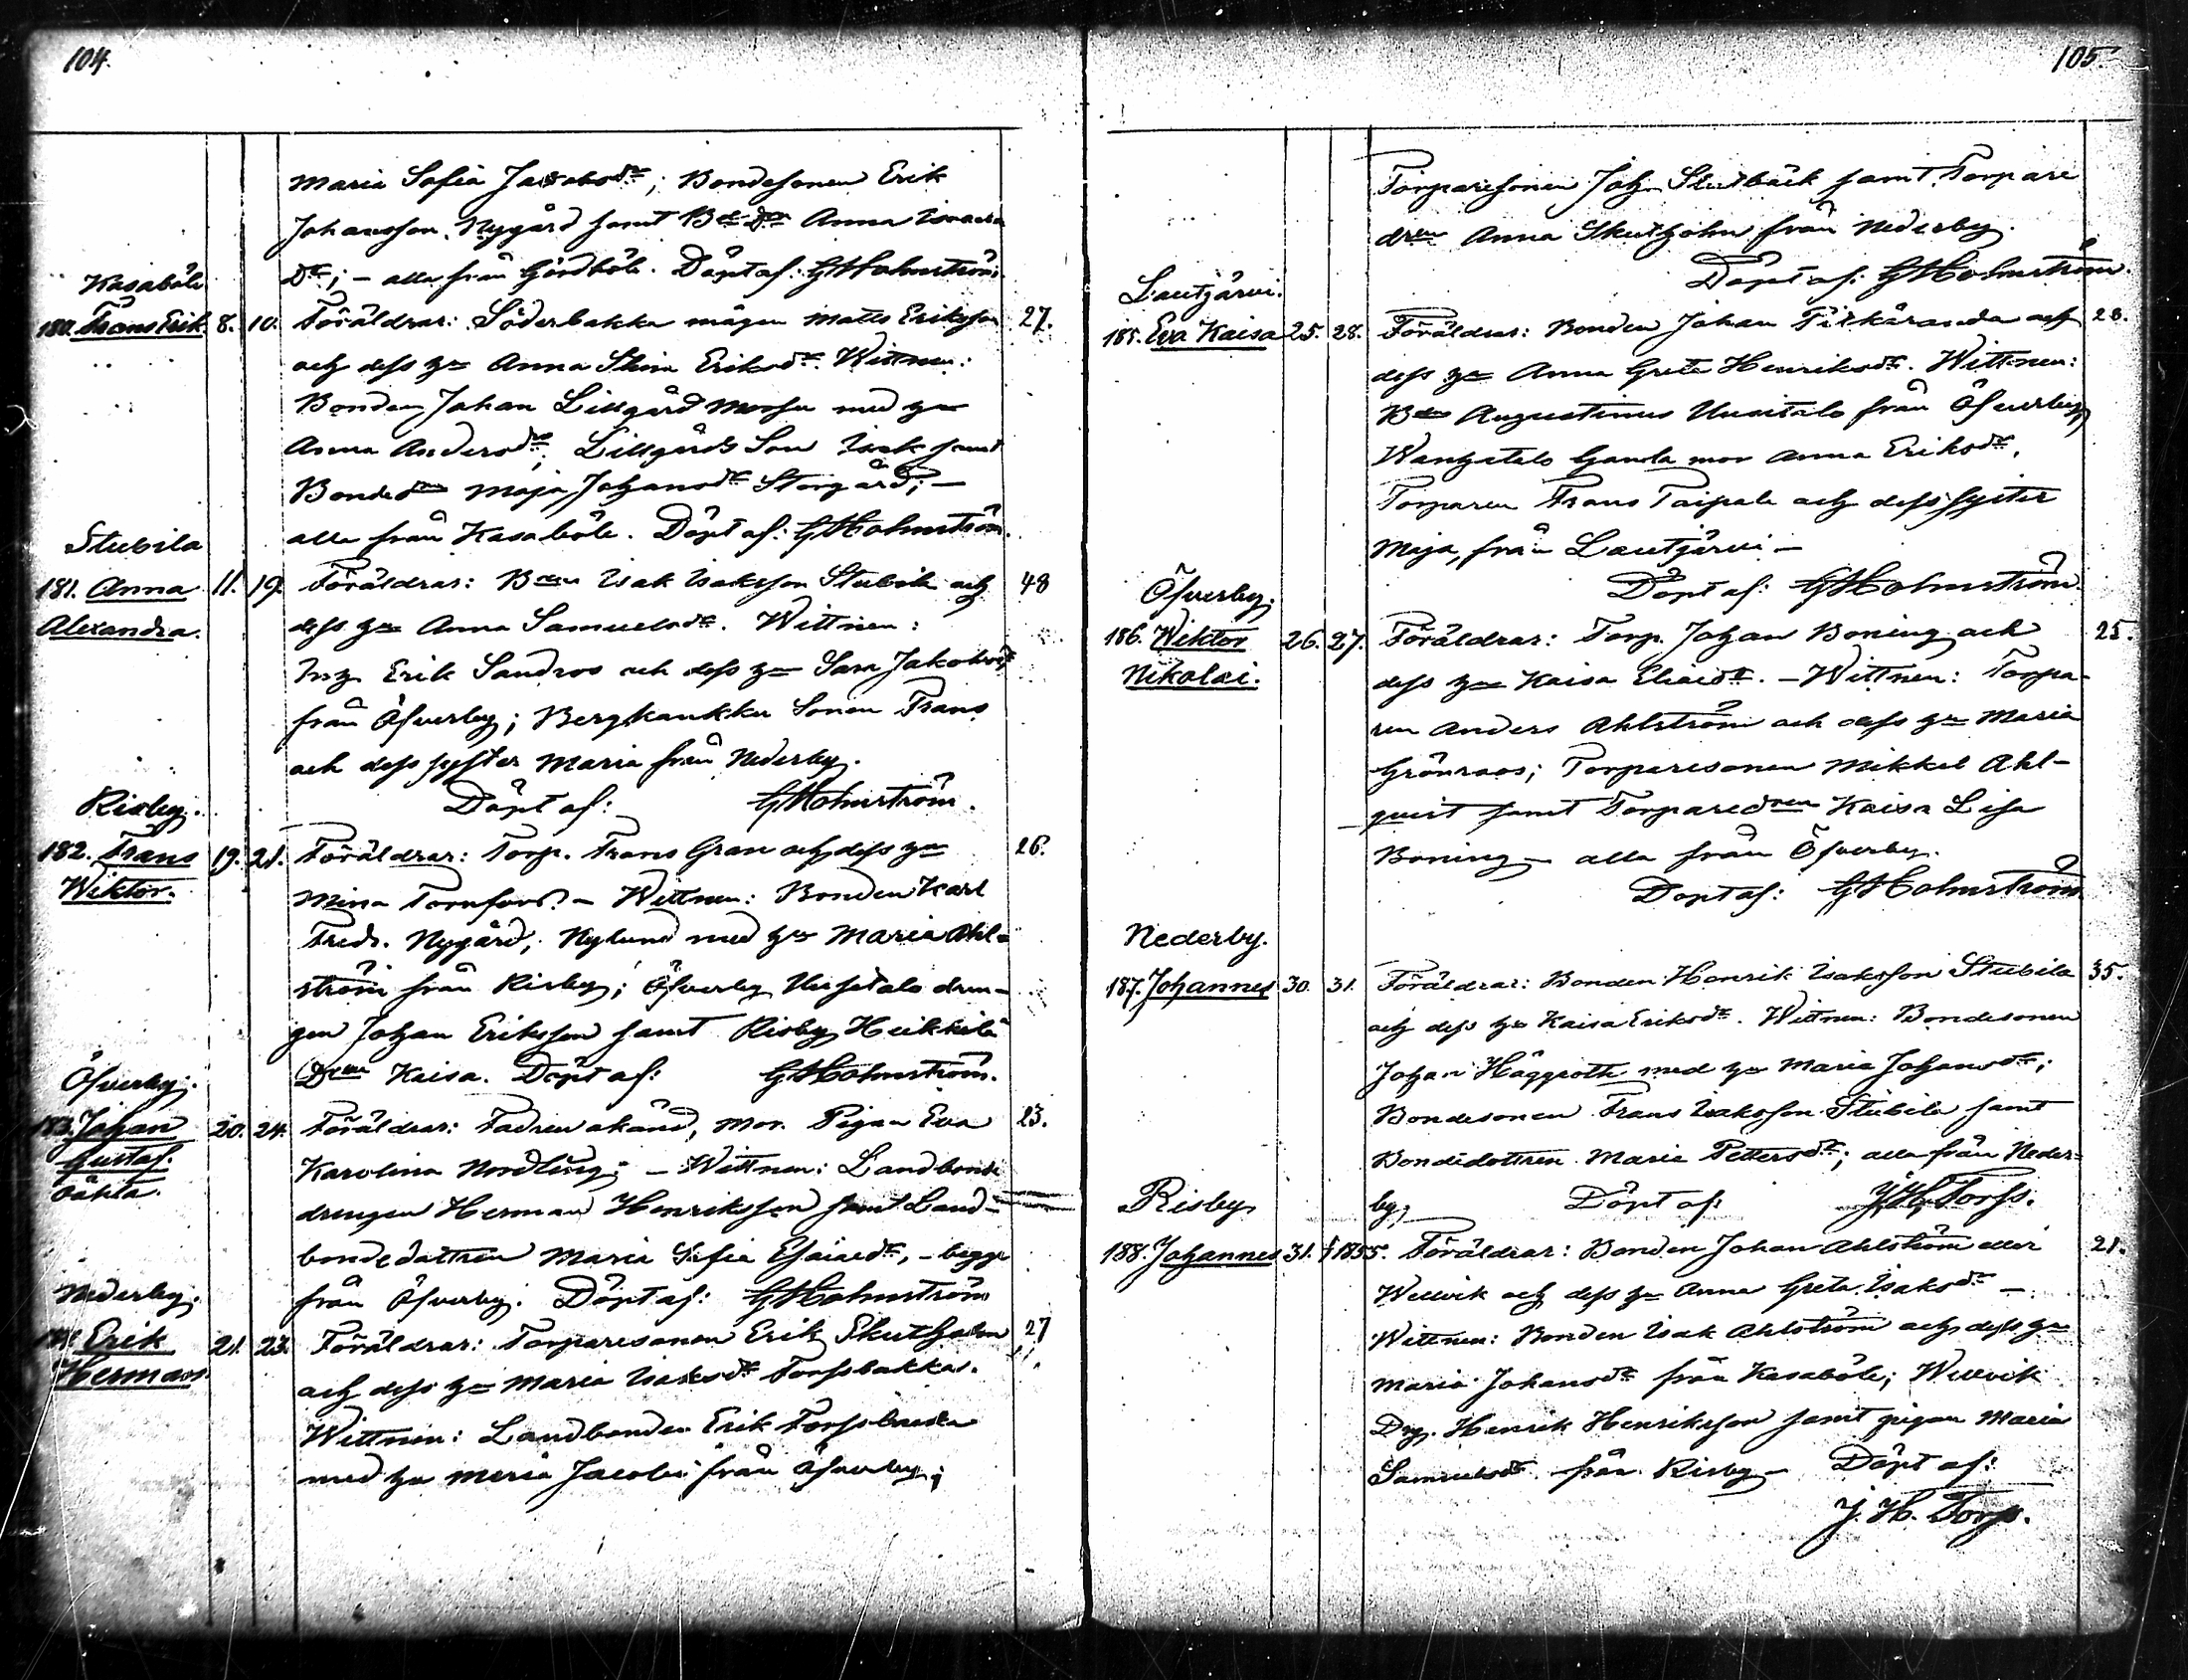 104.
Maria Sofia Jacobsdr; Bondesonen Erik
Johansson Nygård samt Bdedn Anna
Dr; – alla från Gördböle. Döpt af: GHolmström.
Kasaböle
180. Frans Erik. 8. 10. Föräldrar: Söderbakka mågen Matts Eriksson 27.
och dess hu Anna Stina Eriksdr. Wittnen:
Bonden Johan Lillgård med hu
Anna Andersdr; Lillgårds Son Isak samt
Bondedn Maja Johansdr Storgård; –
alla från Kasaböle. Döpt af: GHolmström.
Stubila
181. Anna 11. 19. Föräldrar: Bden Isak Isaksson Stubila och 48
Alexandra. dess hu Anna Samuelsdr. Wittnen:
Erik Sandroos och dess hu Sara Jakobsdr
från Öfverby; Bergkaukku Sonen Frans
och dess syster Maria från Nederby.
Döpt af: GHolmström.
Risby.
182. Frans 19. 21. Föräldrar: Torp. Frans Gran och dess hu 26.
Wiktor. Mina Tornfors. – Wittnen: Bonden Karl
Fredr. Nygård, Nylund med hu Maria Ahl-
ström från Risby; Öfverby Uusitalo dren-
gen Johan Eriksson samt Risby Heikkilä
Dren Kaisa. Döpt af: GHolmström.
Öfverby.
183. Johan 20. 24. Föräldrar: Fadren okänd, Mor. Pigan Eva 23.
Gustaf. Karolina Nordling; – Wittnen: Landbonde
Oäkta. drengen Herman Henriksson samt Land-
bondedottren Maria Sofia Esaiaedr, – begge
från Öfverby. Döpt af: GHolmström
Nederby.
184. Erik 21. 23. Föräldrar: Torparesonen Erik Skutholm 27
Herman. och dess hu Maria Isaksdr Forssbakkas.
Wittnen: Landbonden Erik
med hu Maria Jacobs från Öfverby;
105.
Torparesonen Joh. Slutbäck samt Torpare
dren Anna Skutholm från Nederby.
Döpt af: GHolmström.
Lautjärvi.
185. Eva Kaisa 25. 28. Föräldrar: Bonden Johan och 28.
dess hu Anna Greta Henriksdr. Wittnen:
Bden Augustinus Uusitalo från Öfverby,
Wanhatalo Gamla mor Anna Eriksdr.
Torparen Frans Taipale och dess syster
Maja, från Lautjärvi –
Döpt af: GHolmström.
Öfverby.
186. Wiktor 26. 27. Föräldrar: Torp. Johan Boning och 25.
Nikolai. dess hu Kaisa Eliaedr. – Wittnen: Torpa-
ren Anders Ahlström och dess hu Maria
Grönroos; Torparesonen Mikkel Ahl-
quist samt Torparedren Kaisa Lisa
Boning – alla från Öfverby.
Döpt af: GHolmström.
Nederby.
187. Johannes 30. 31. Föräldrar: Bonden Henrik Isaksson Stubila 35.
och dess hu Kaisa Eriksdr. Wittnen: Bondesonen
Johan Häggroth med hu Maria Johansdr;
Bondesonen Frans Isaksson Stubila samt
Bondedottren Maria Pettersdr; alla från Neder-
by, Döpt af: J.H. Forss.
Risby
188. Johannes 31. 1 1855. Föräldrar: Bonden Johan Ahlström eller 21.
Wellvik och dess hu Anna Greta Isaksdr –
Wittnen: Bonden Isak Ahlström och dess hu
Maria Johansdr från Kasaböle; Wellvik
Drg. Henrik Henriksson samt pigan Maria
Samuelsdr från Risby – Döpt af:
J. H. Forss.